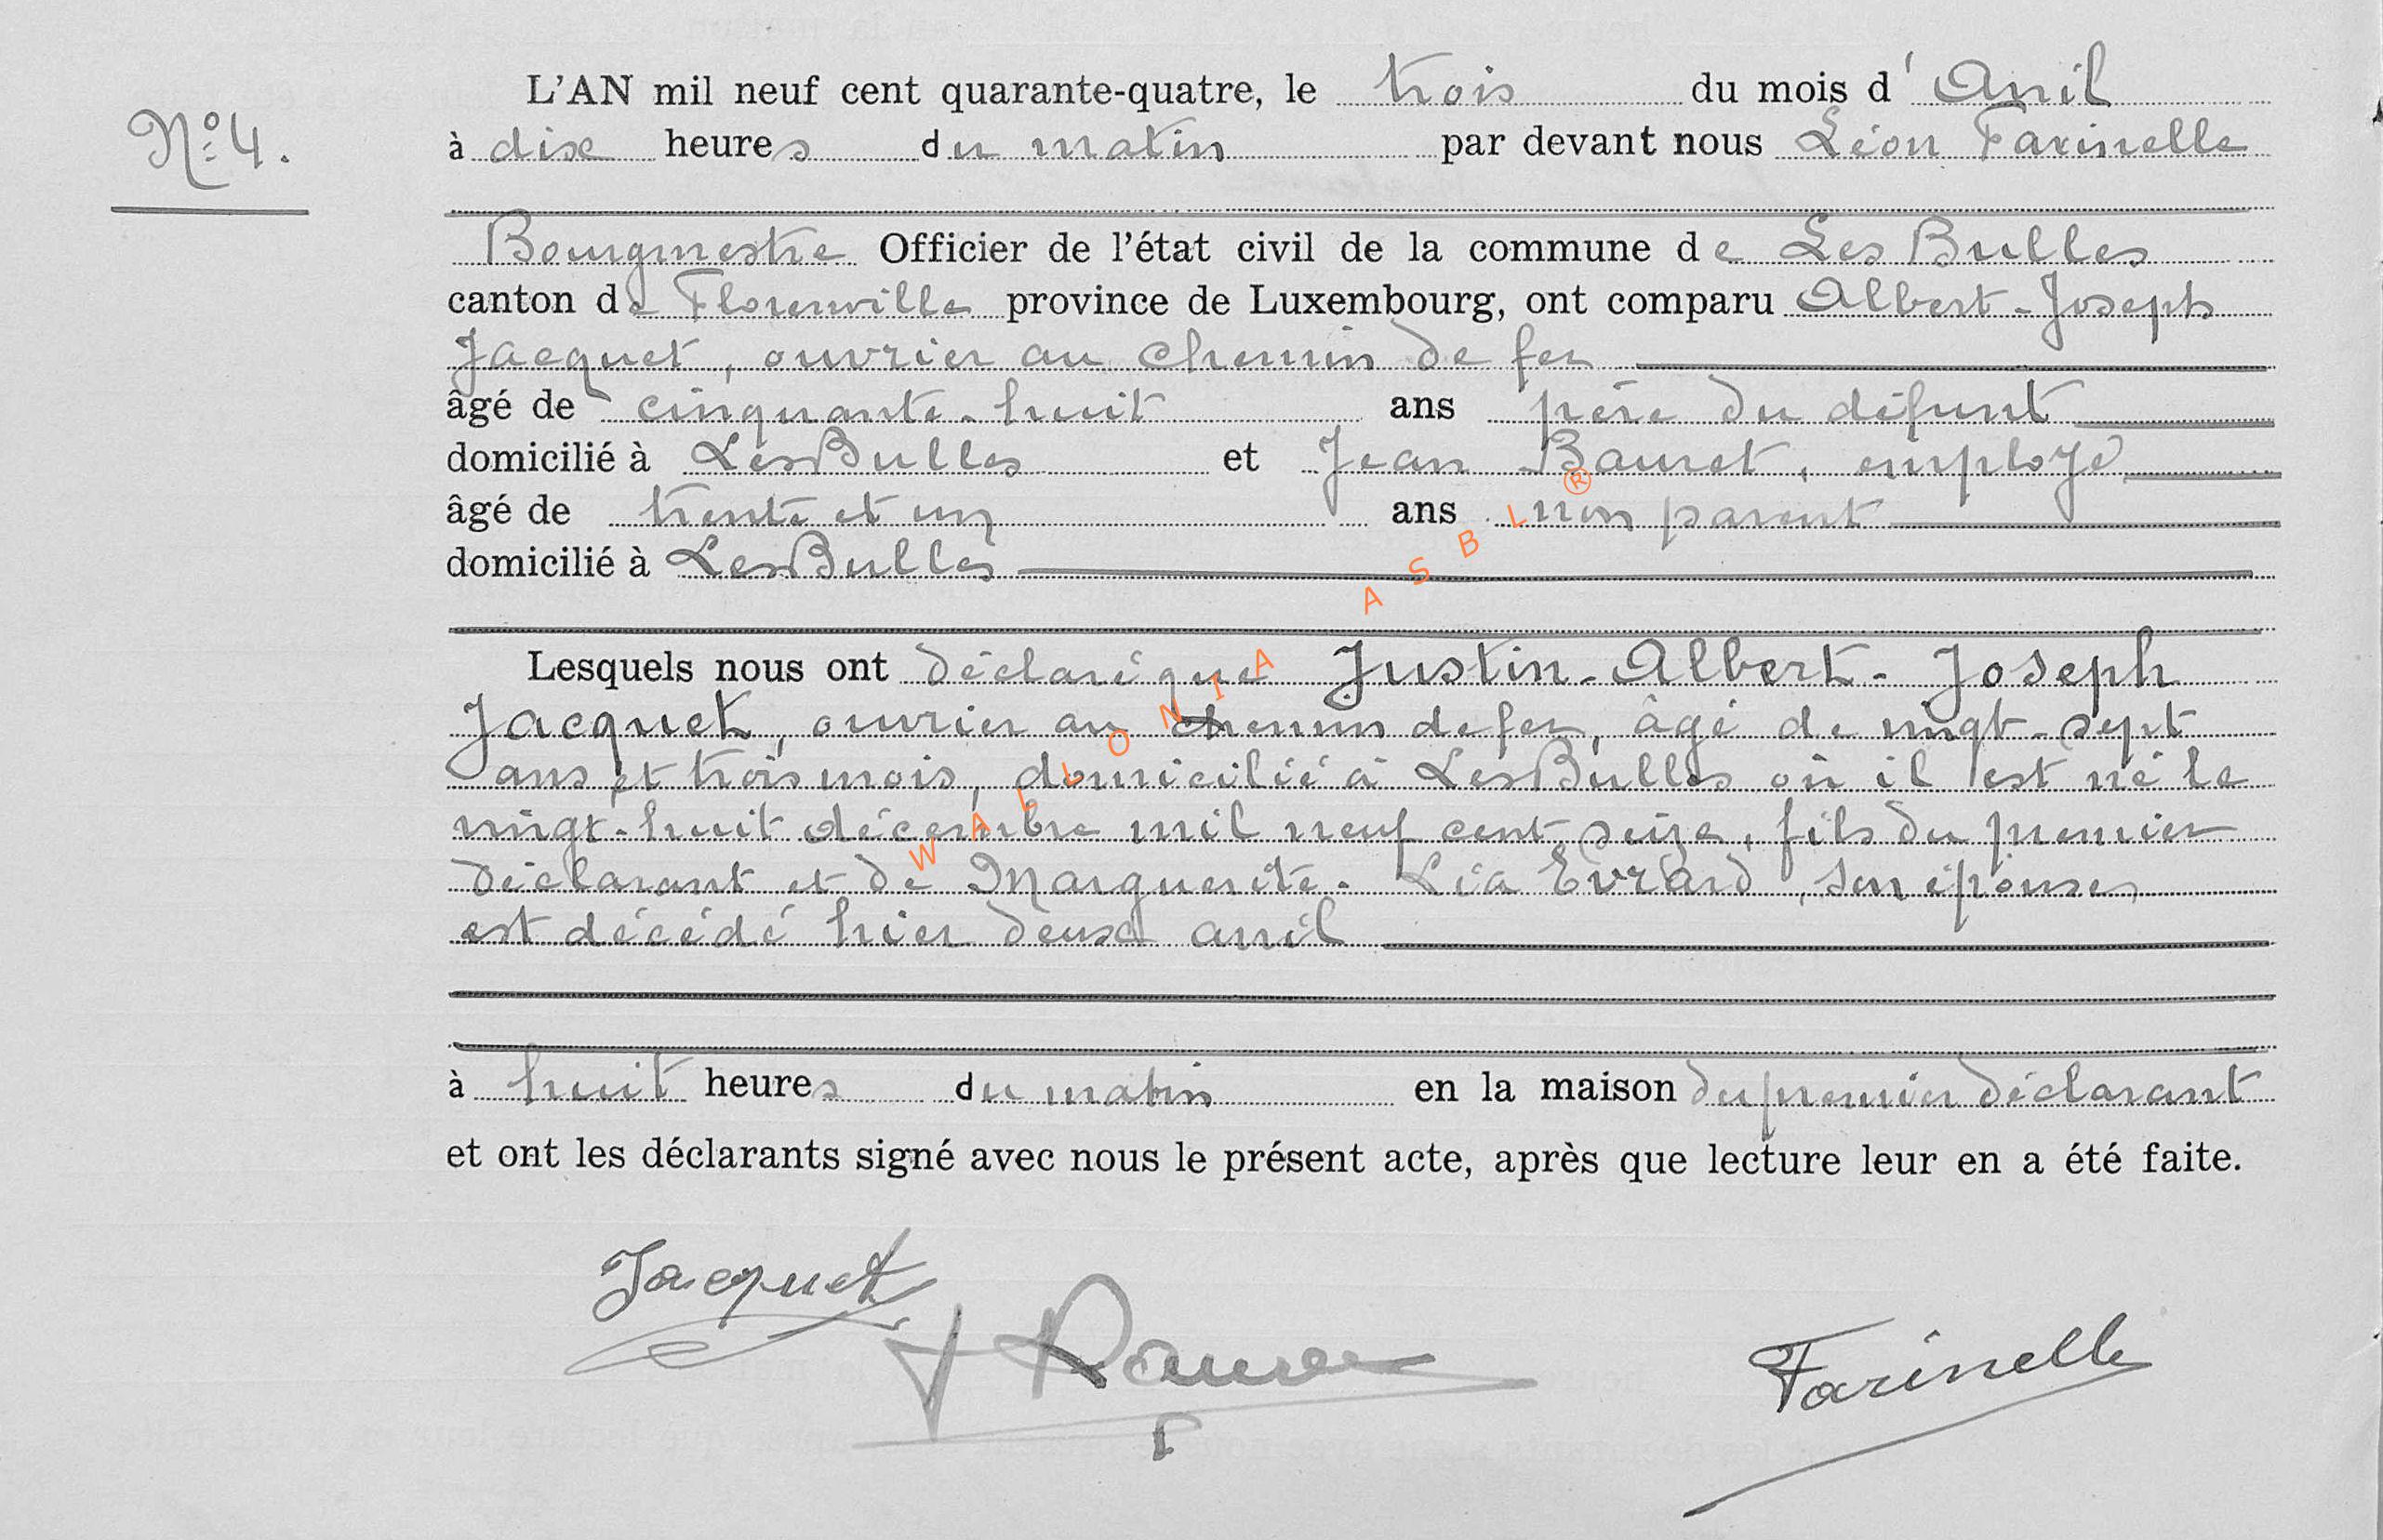 N° 4.
L'AN mil neuf cent quarante-quatre, le trois du mois d'Avril
à dix heures du matin par devant nous Léon Farinelle
Bourgmestre Officier de l'état civil de la commune de Les Bulles
canton de Florenville province de Luxembourg, ont comparu Albert-Joseph
Jacquet, ouvrier au chemin de fer
âgé de cinquante-huit ans père du défunt
domicilié à Les Bulles et Jean Bauret, employé
âgé de trente et un ans non parent
domicilié à Les Bulles
Lesquels nous ont déclaré que Justin-Albert-Joseph
Jacquet, ouvrier au chemin de fer, âgé de vingt-sept
ans et trois mois, domicilié à Les Bulles où il est né le
vingt-huit décembre mil neuf cent seize, fils du premier
déclarant et de Marguerite-Léa Evrard, son épouse,
est décédé hier deux avril
à huit heures du matin en la maison du premier déclarant
et ont les déclarants signé avec nous le présent acte, après que lecture leur en a été faite.
Jacquet
Farinelle
WALLONIA ASBL®